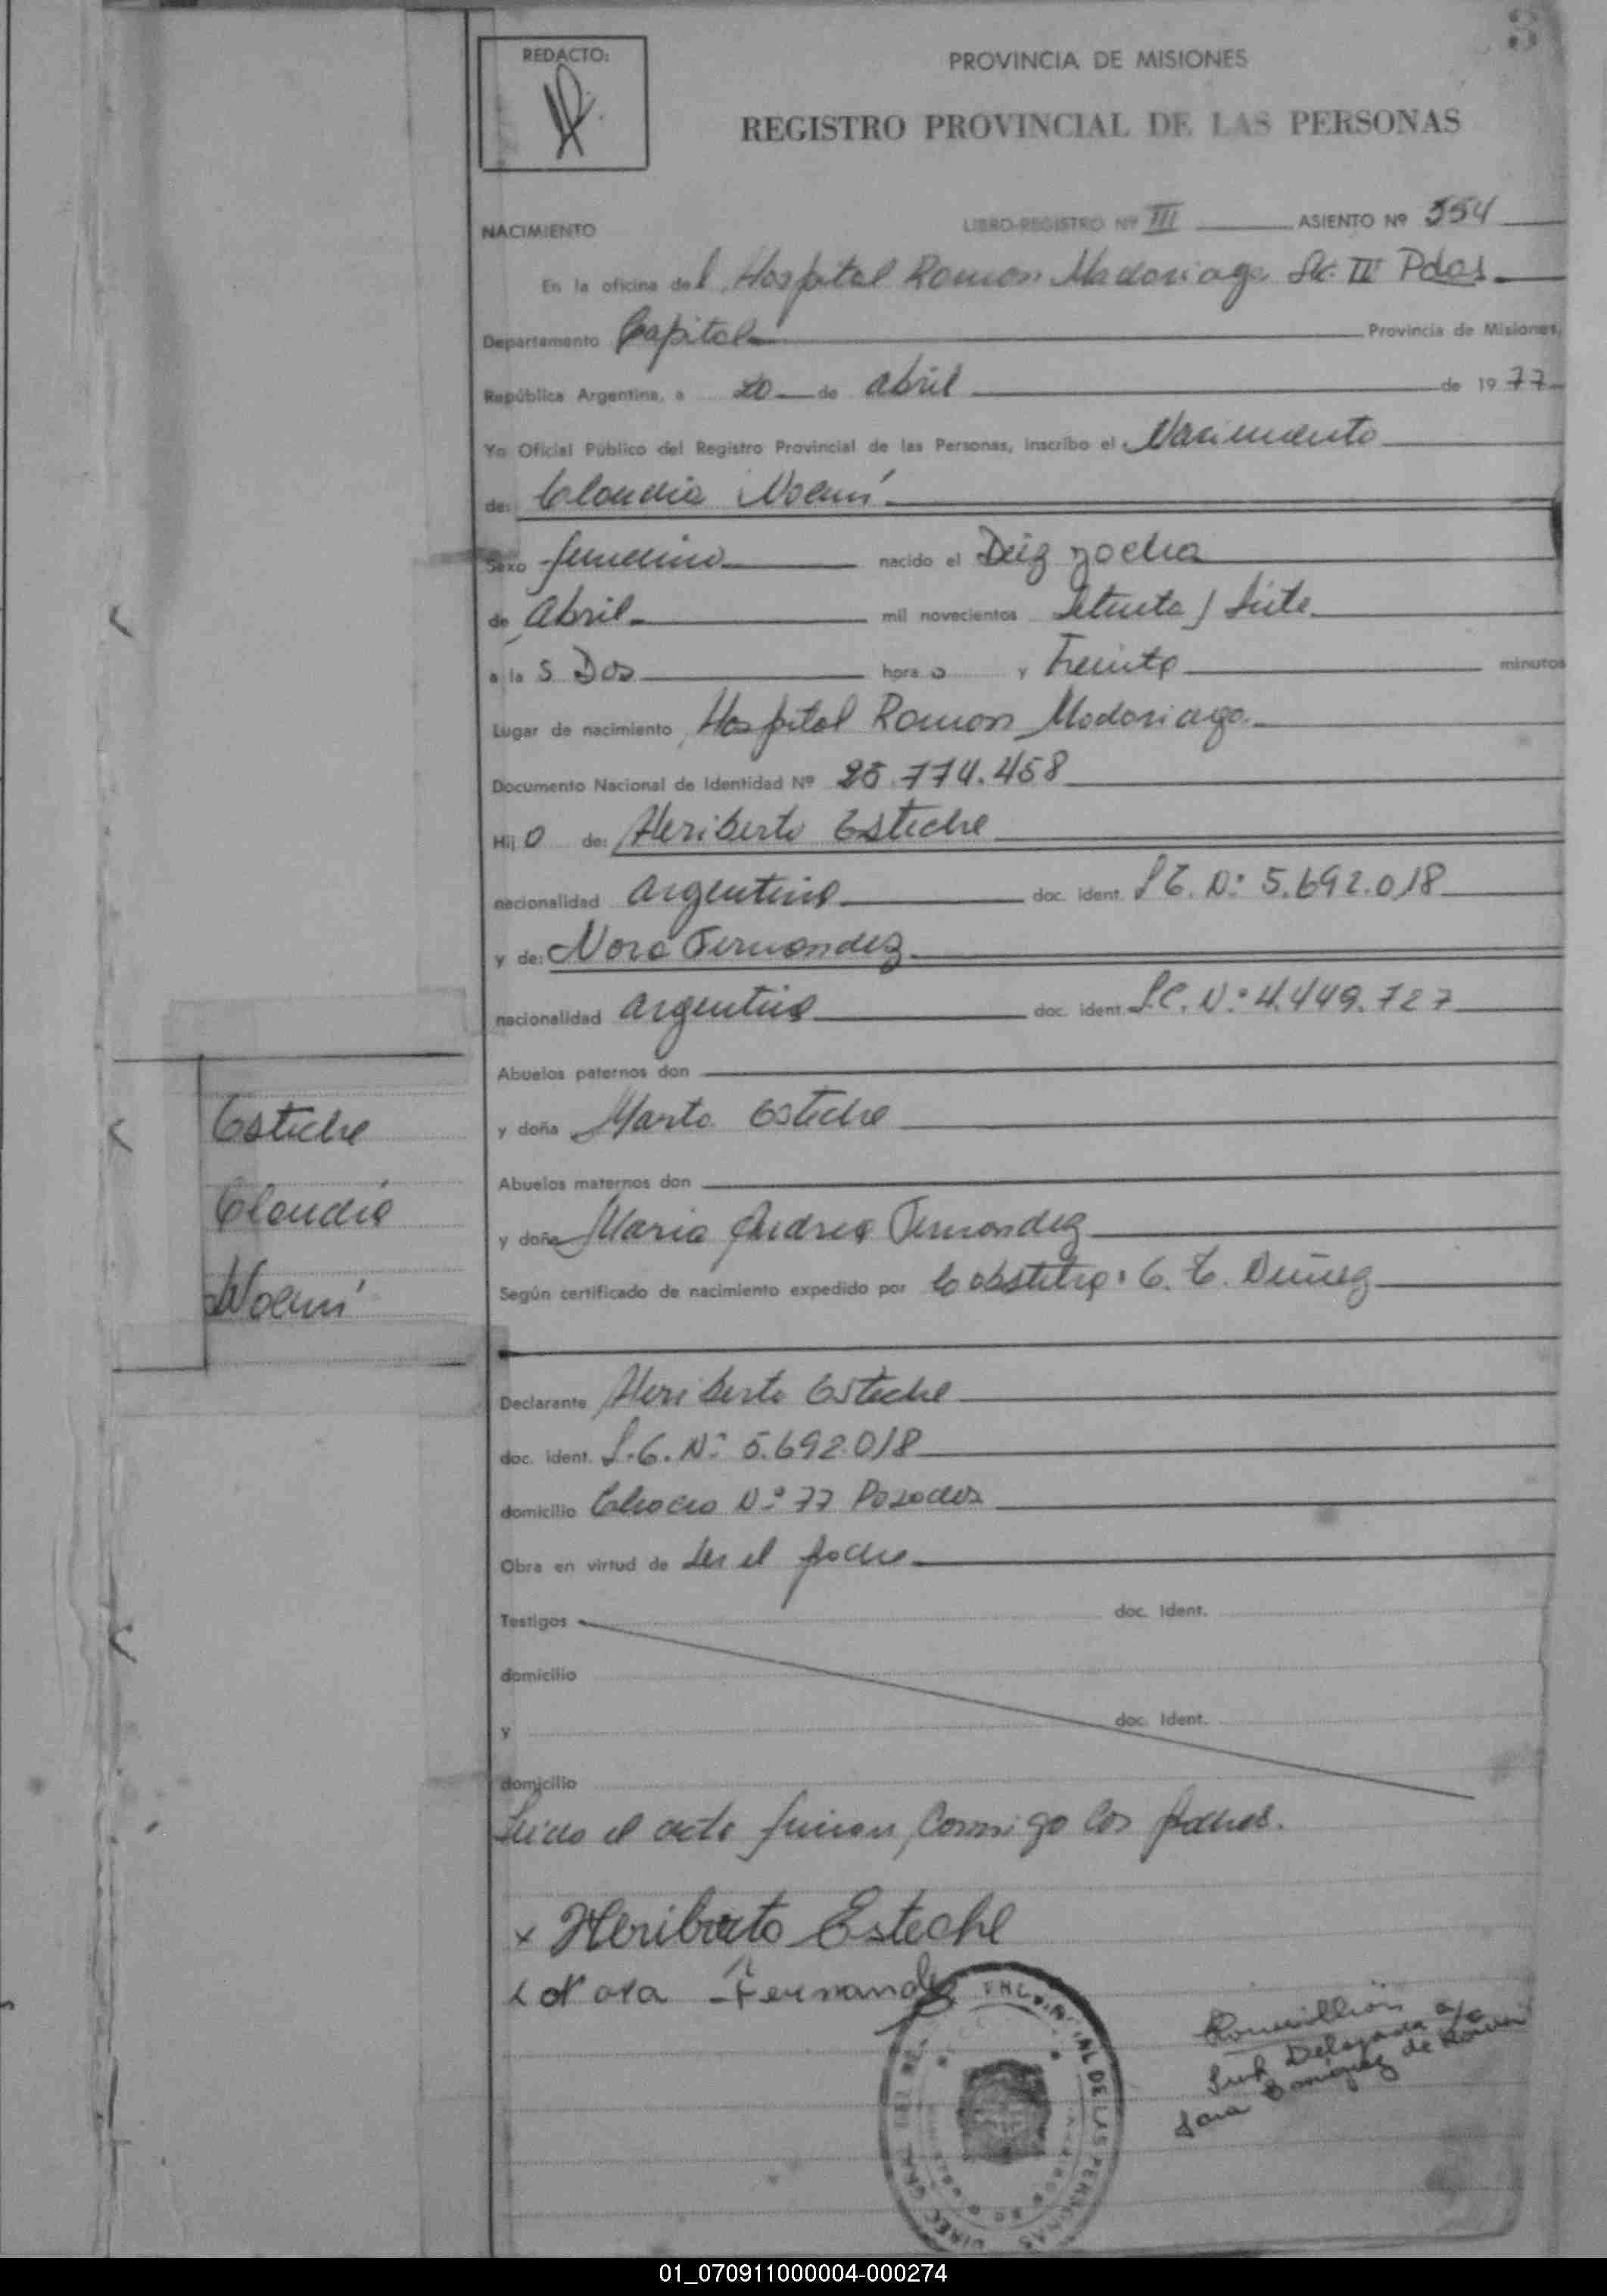 REDACTO:
PROVINCIA DE MISIONES
REGISTRO PROVINCIAL DE LAS PERSONAS
NACIMIENTO LIBRO-REGISTRO Nº III ASIENTO Nº 554
En la oficina del Hospital Ramon Madariaga Sec. III Pdas
Departamento Capital Provincia de Misiones,
República Argentina, a 20 de abril de 1977
Yo Oficial Público del Registro Provincial de las Personas, inscribo el Nacimiento
de: Claudia Noemí
Sexo femenino nacido el Deiz y ocho
de Abril mil novecientos Setenta y Siete
a las Dos horas y Treinta minutos
Lugar de nacimiento Hospital Ramon Madariaga
Documento Nacional de Identidad Nº 25.774.458
Hijo de: Heriberto Esteche
nacionalidad argentina doc. ident. L.E. Nº 5.692.018
y de: Nora Fernandez
nacionalidad argentina doc. ident. L.C. Nº 4.449.727
Abuelos paternos don
y doña Marta Esteche
Abuelos maternos don
y doña Maria Andrea Fernandez
Según certificado de nacimiento expedido por la obstetra: E. E.
Esteche
Claudia
Noemí
Declarante Heriberto Esteche
doc. ident. L.E. Nº 5.692.018
domicilio Chaco Nº 77 Posadas
Obra en virtud de ser el padre
Testigos doc. Ident.
domicilio
y doc. Ident.
domicilio
Leido el acta firman conmigo los padres.
x Heriberto Esteche
x Nora Fernandez
Sub Delegada a/c
Sara de
PROVINCIAL DE LAS PERSONAS
01_070911000004-000274